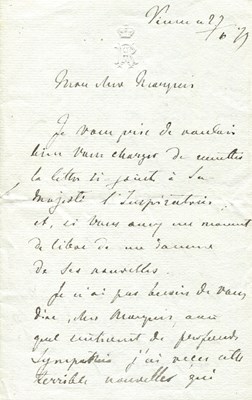 Vienne 27/6 79
Mon cher Marquis
Je vous prie de vouloir
bien vous charger de remettre
la lettre ci joint à Sa
Majesté l'Impératrice
et, si vous avez un moment
de libre de me donner
de ses nouvelles.
Je n'ai pas besoin de vous
dire, cher Marquis, avec
quel sentiment de profonde
Sympathie j'ai reçu cette
terrible nouvelle qui